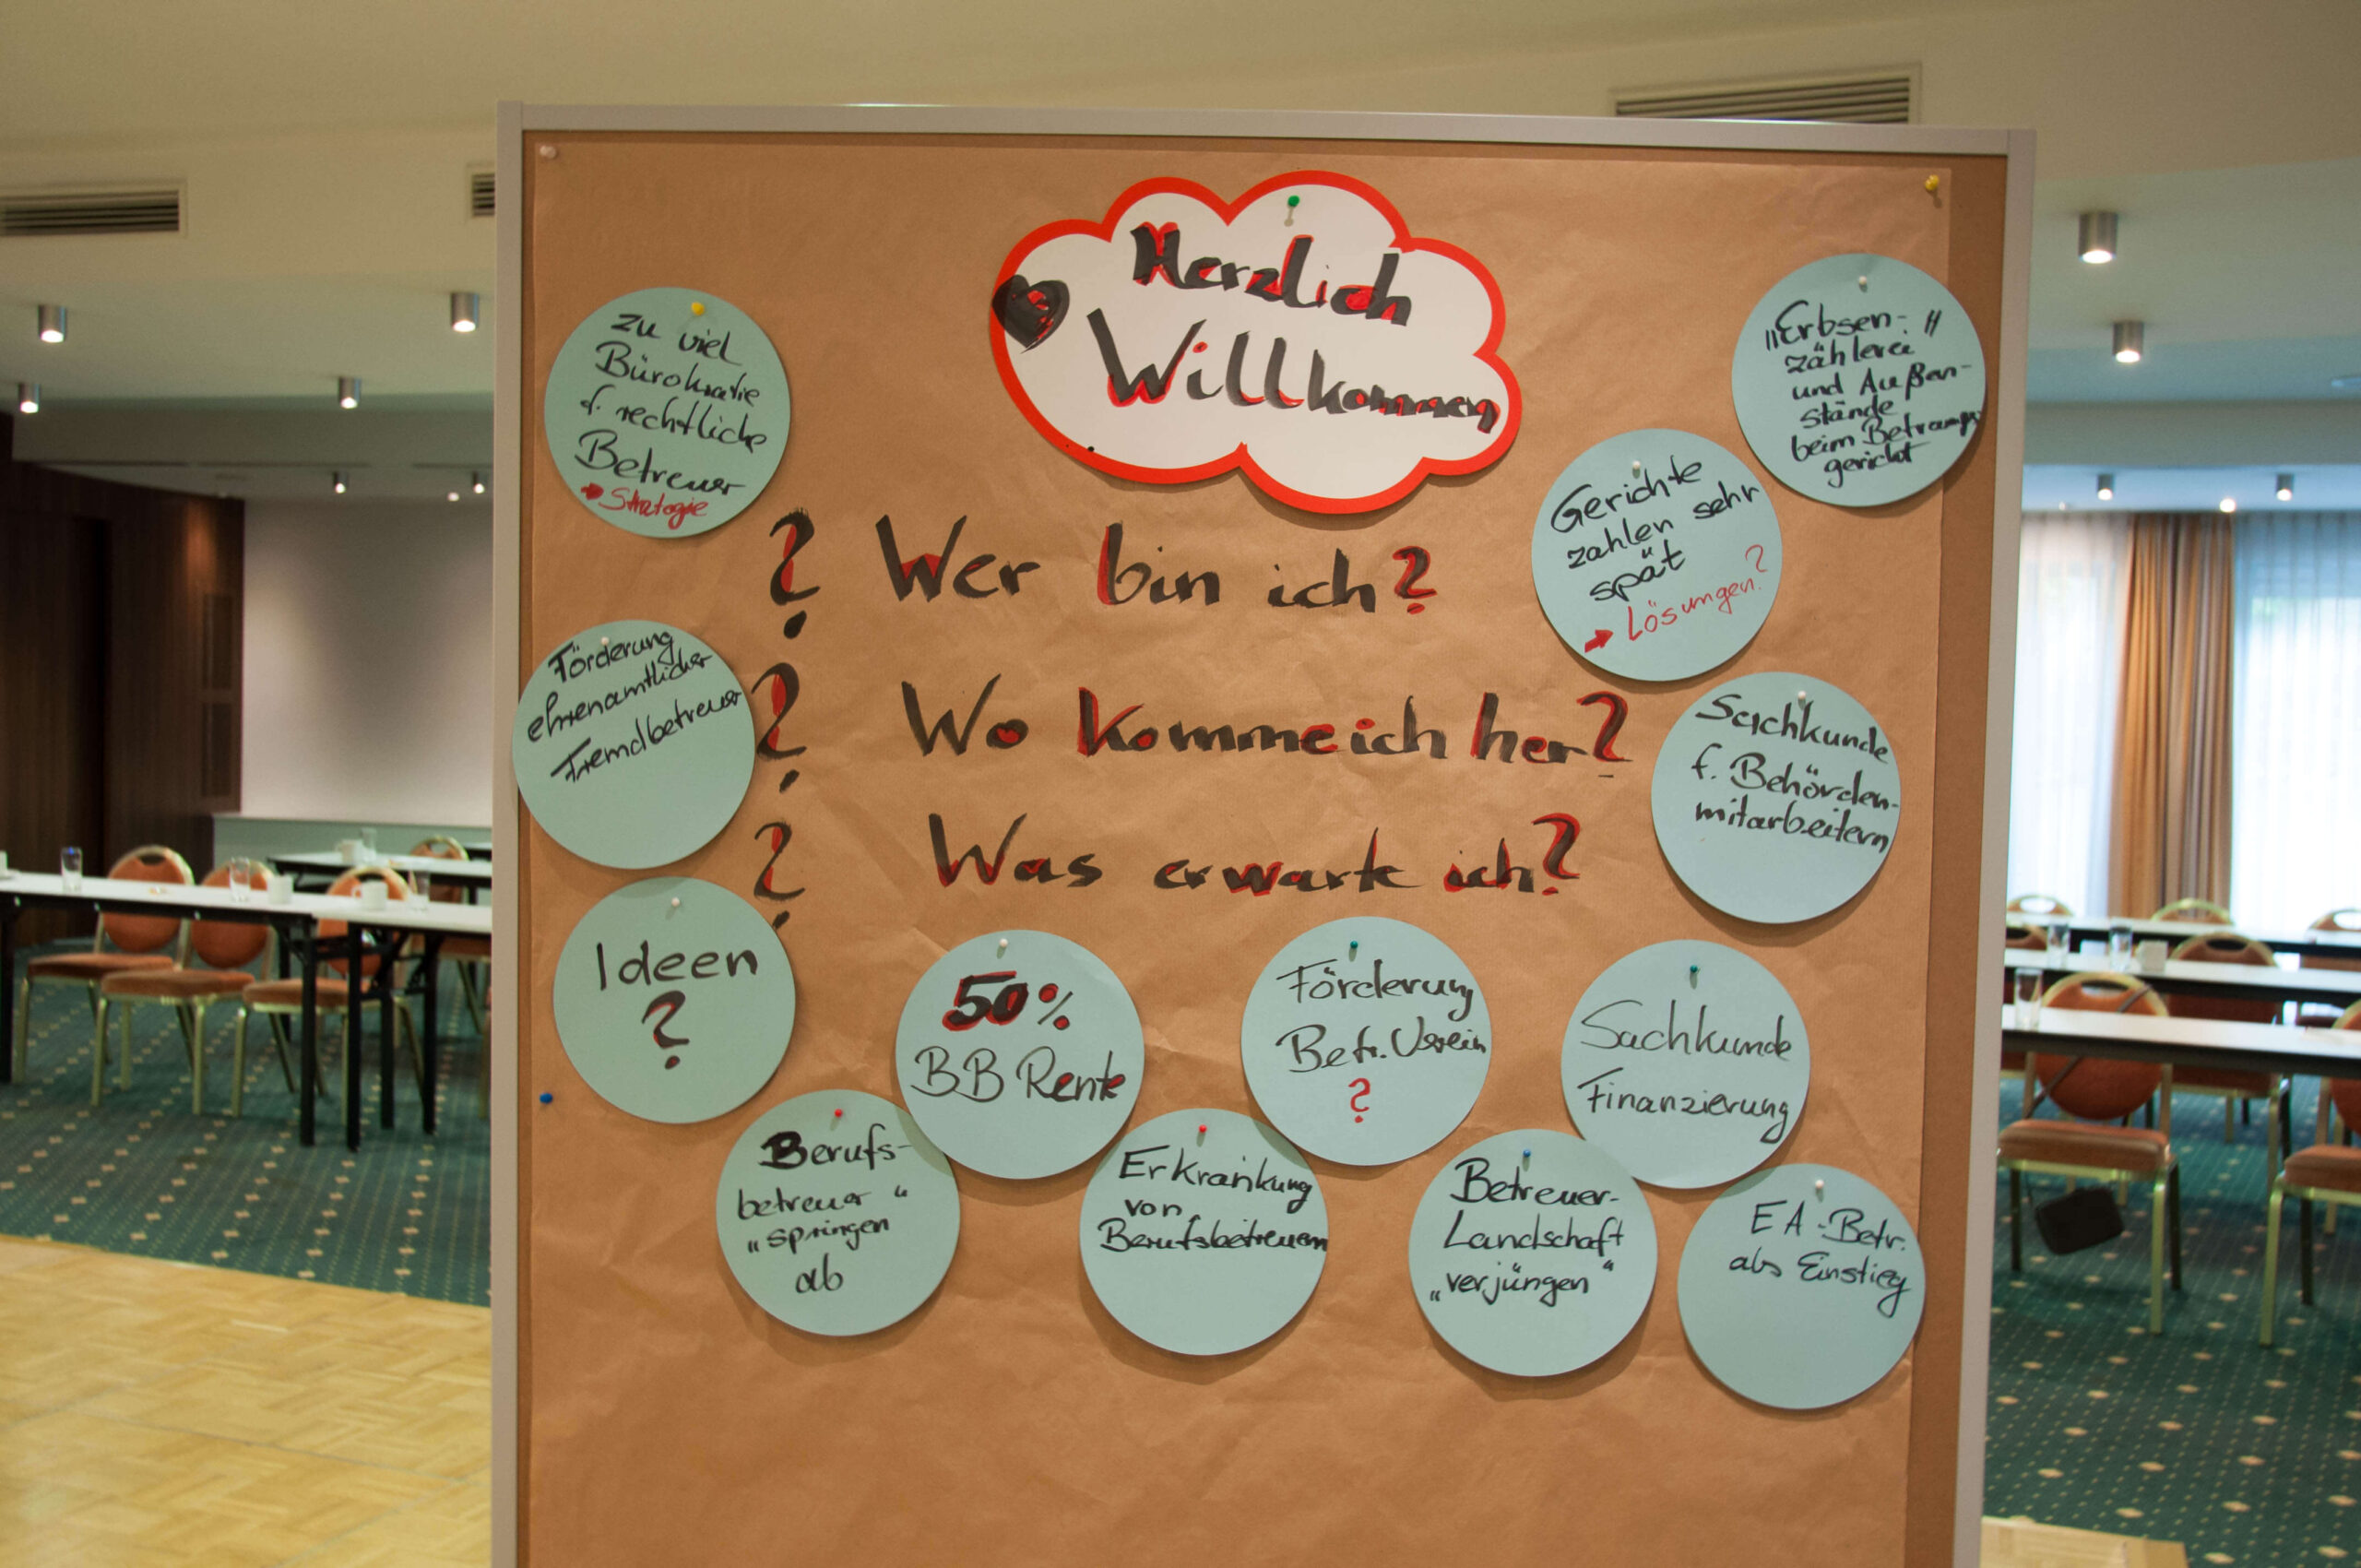 Herzlich
Willkommen
? Wer bin ich?
? Wo komme ich her?
? Was erwarte ich?
zu viel
Bürokratie
f. rechtliche
Betreuer
→ Strategie
Förderung
ehrenamtlicher
Fremdbetreuer
Ideen
?
Berufs-
betreuer "
"springen
ab
50%
BB Rente
Erkrankung
von
Berufsbetreuern
Förderung
Betr. Verein
?
Betreuer-
Landschaft
„verjüngen“
Sachkunde
Finanzierung
EA-Betr.
als Einstieg
Sachkunde
f. Behörden-
mitarbeitern
Gerichte
zahlen sehr
spät
→ Lösungen?
"Erbsen-"
zählerei
und Außen-
stände
beim
gericht